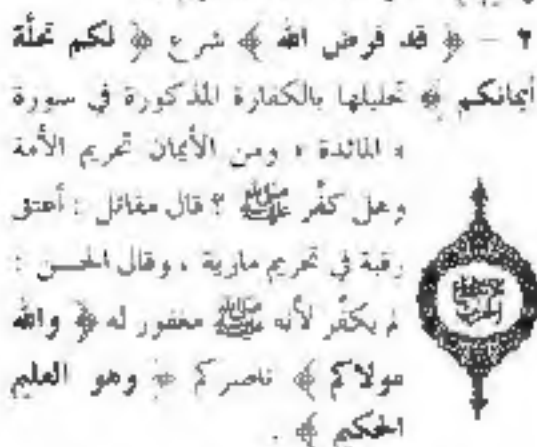 ٢ – ﴿ قد فرض الله ﴾ شرع ﴿ لكم تحلّة
أيمانكم ﴾ تحليلها بالكفارة المذكورة في سورة
« المائدة » ومن الأيمان تحريم الأمة
وهل كفَّر ﷺ ؟ قال مقاتل : أعتق
رقبة في تحريم مارية ، وقال الحسن :
لم يكفَّر لأنه ﷺ مغفور له ﴿ والله
مولاكم ﴾ ناصركم ﴿ وهو العليم
الحكيم ﴾ .